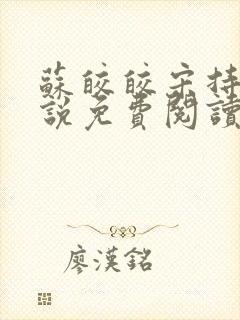 蘇皎皎宋持
說免費閱讀
廖漢銘